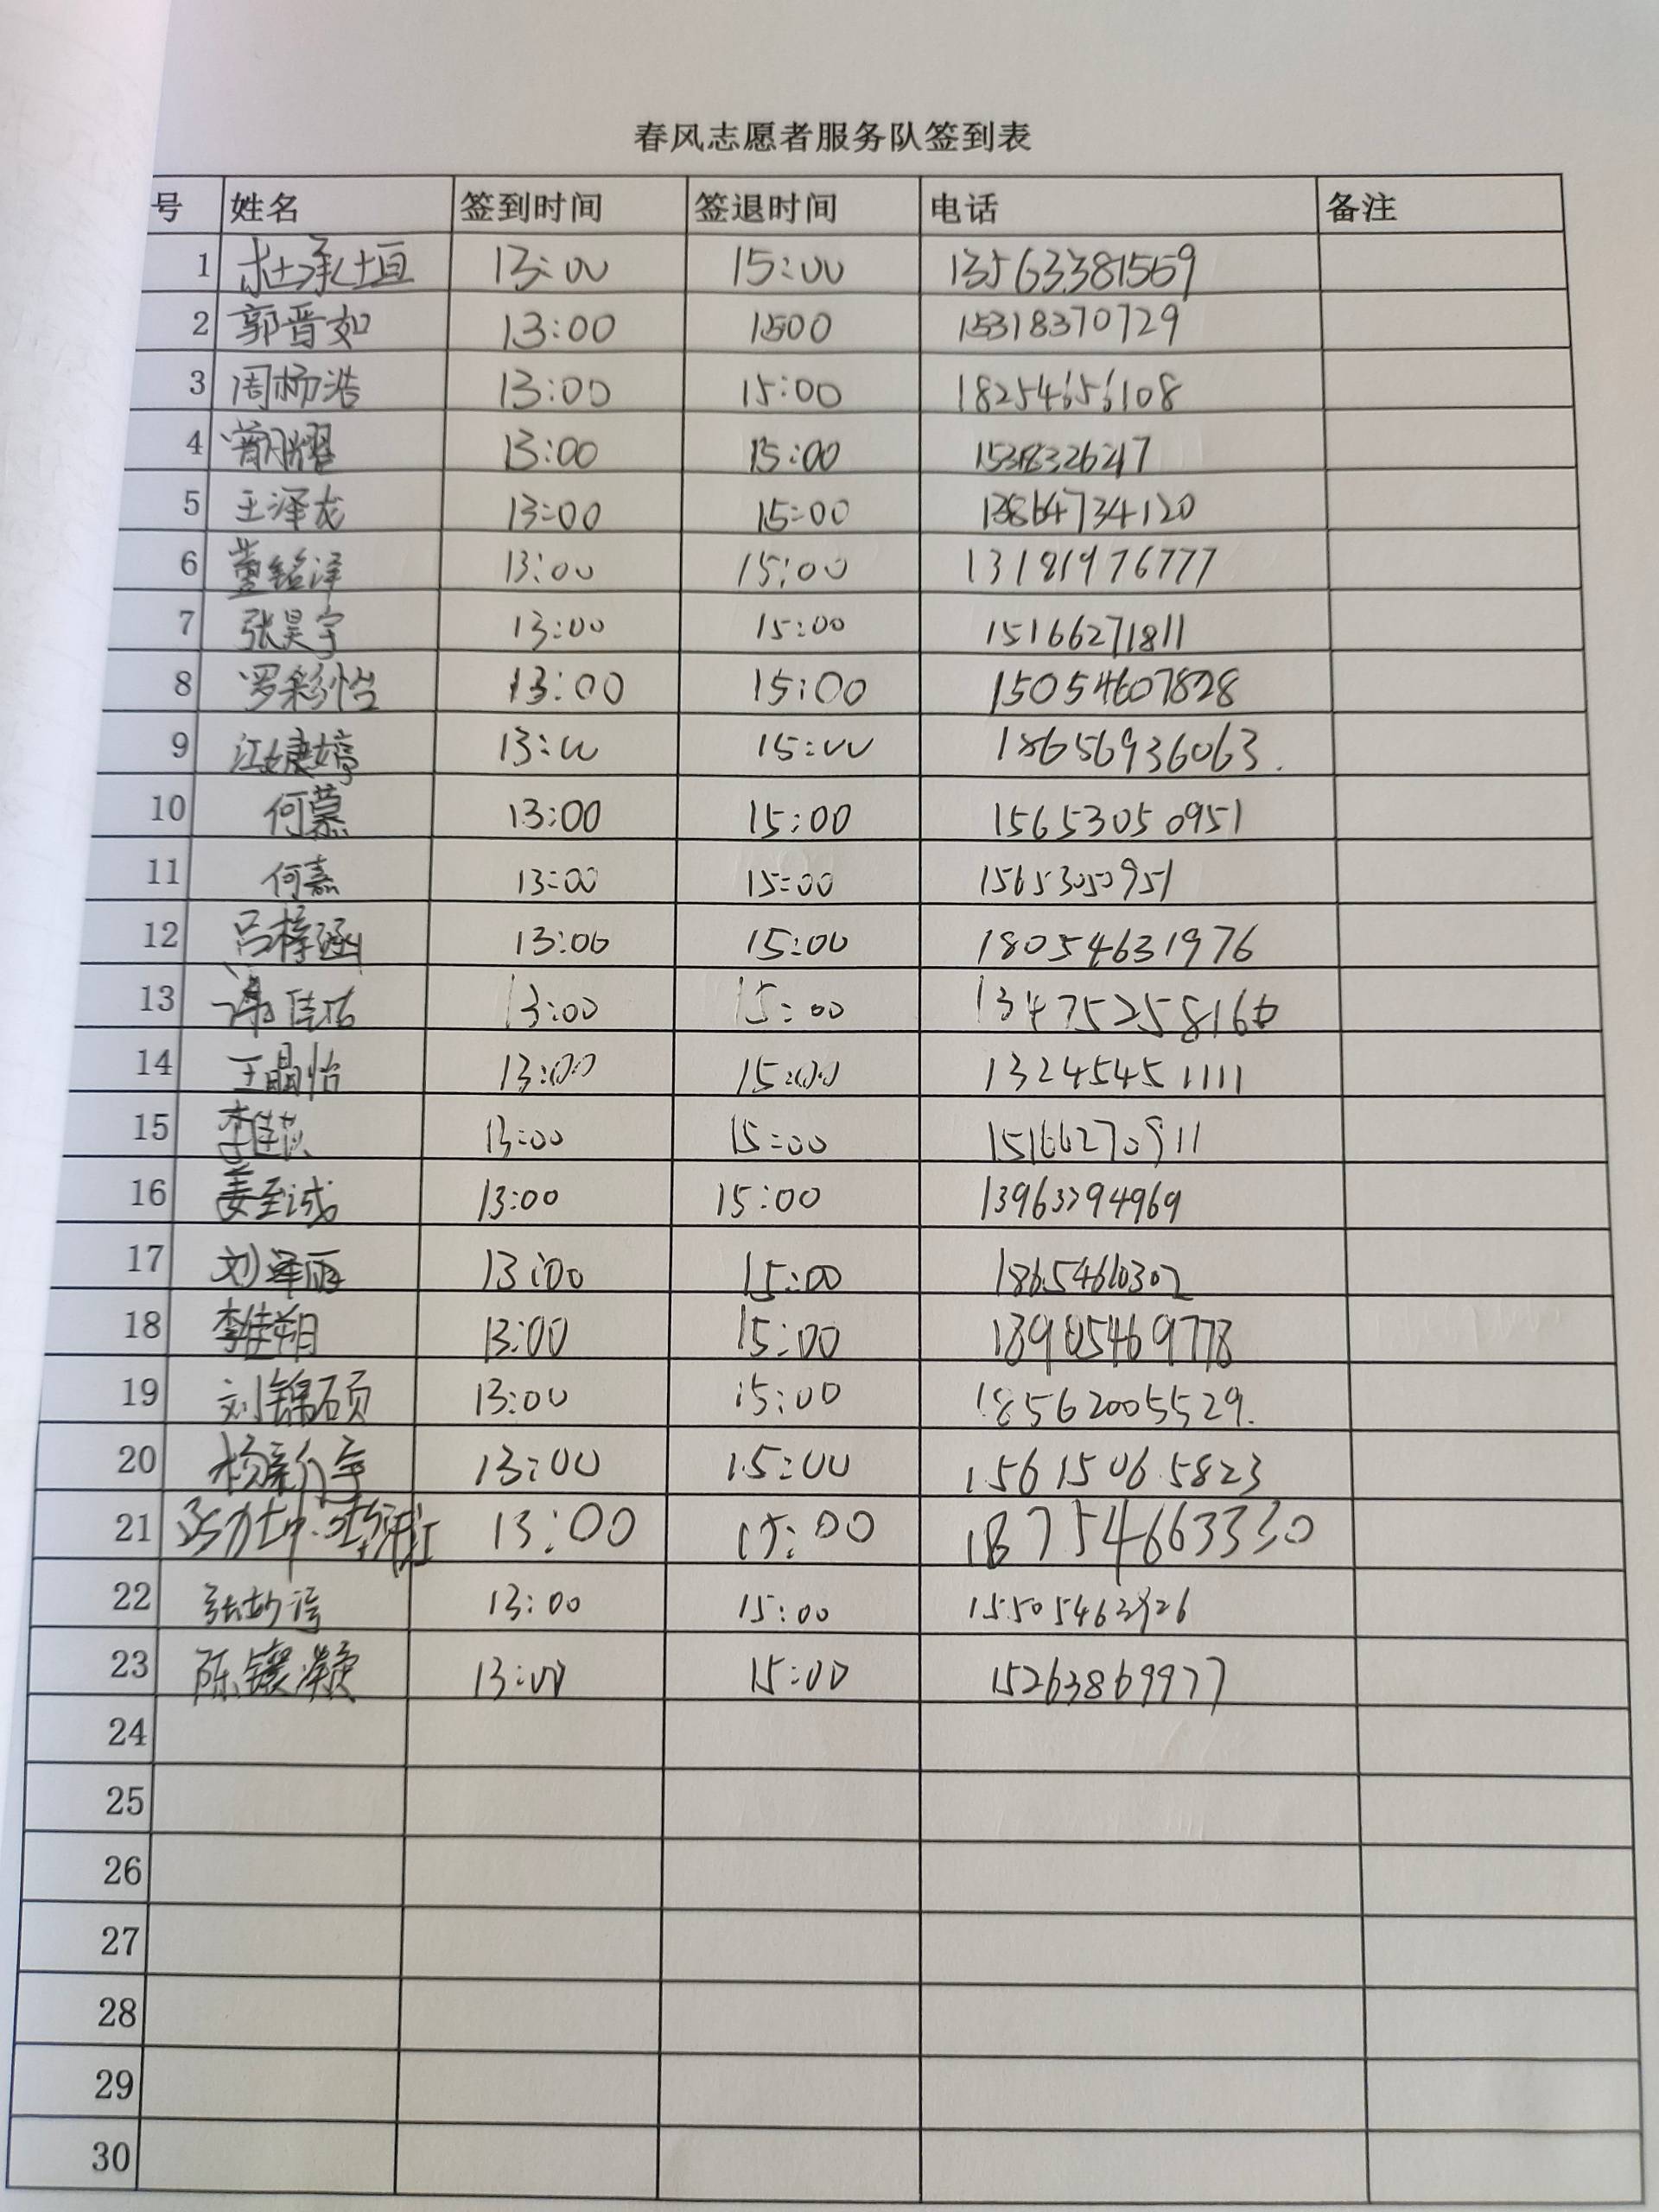 春风志愿者服务队签到表
号 姓名 签到时间 签退时间 电话 备注
1 杜承恒 13:00 15:00 13563381559
2 郭晋如 13:00 1500 15318370729
3 周杨浩 13:00 15:00 18254656108
4 13:00 15:00
5 王泽龙 13:00 15:00 13864734120
6 董铭泽 13:00 15:00 13181976777
7 张昊宇 13:00 15:00 15166271811
8 罗彩怡 13:00 15:00 15054607828
9 13:00 15:00 18656936063.
10 何慕 13:00 15:00 15653050951
11 何嘉 13:00 15:00 15653050951
12 吕梓涵 13:00 15:00 18054631976
13 13:00 15:00
14 王晶怡 13:00 15:00 13245451111
15 13:00 15:00 15166270911
16 姜至诚 13:00 15:00
17 刘泽雨 13:00 15:00
18 李佳朔 13:00 15:00 18905469778
19 刘锦硕 13:00 15:00 18562005529.
20 13:00 15:00 15615065823
21 13:00 15:00 18754663330
22 13:00 15:00
23 13:00 15:00 15263869977
24
25
26
27
28
29
30